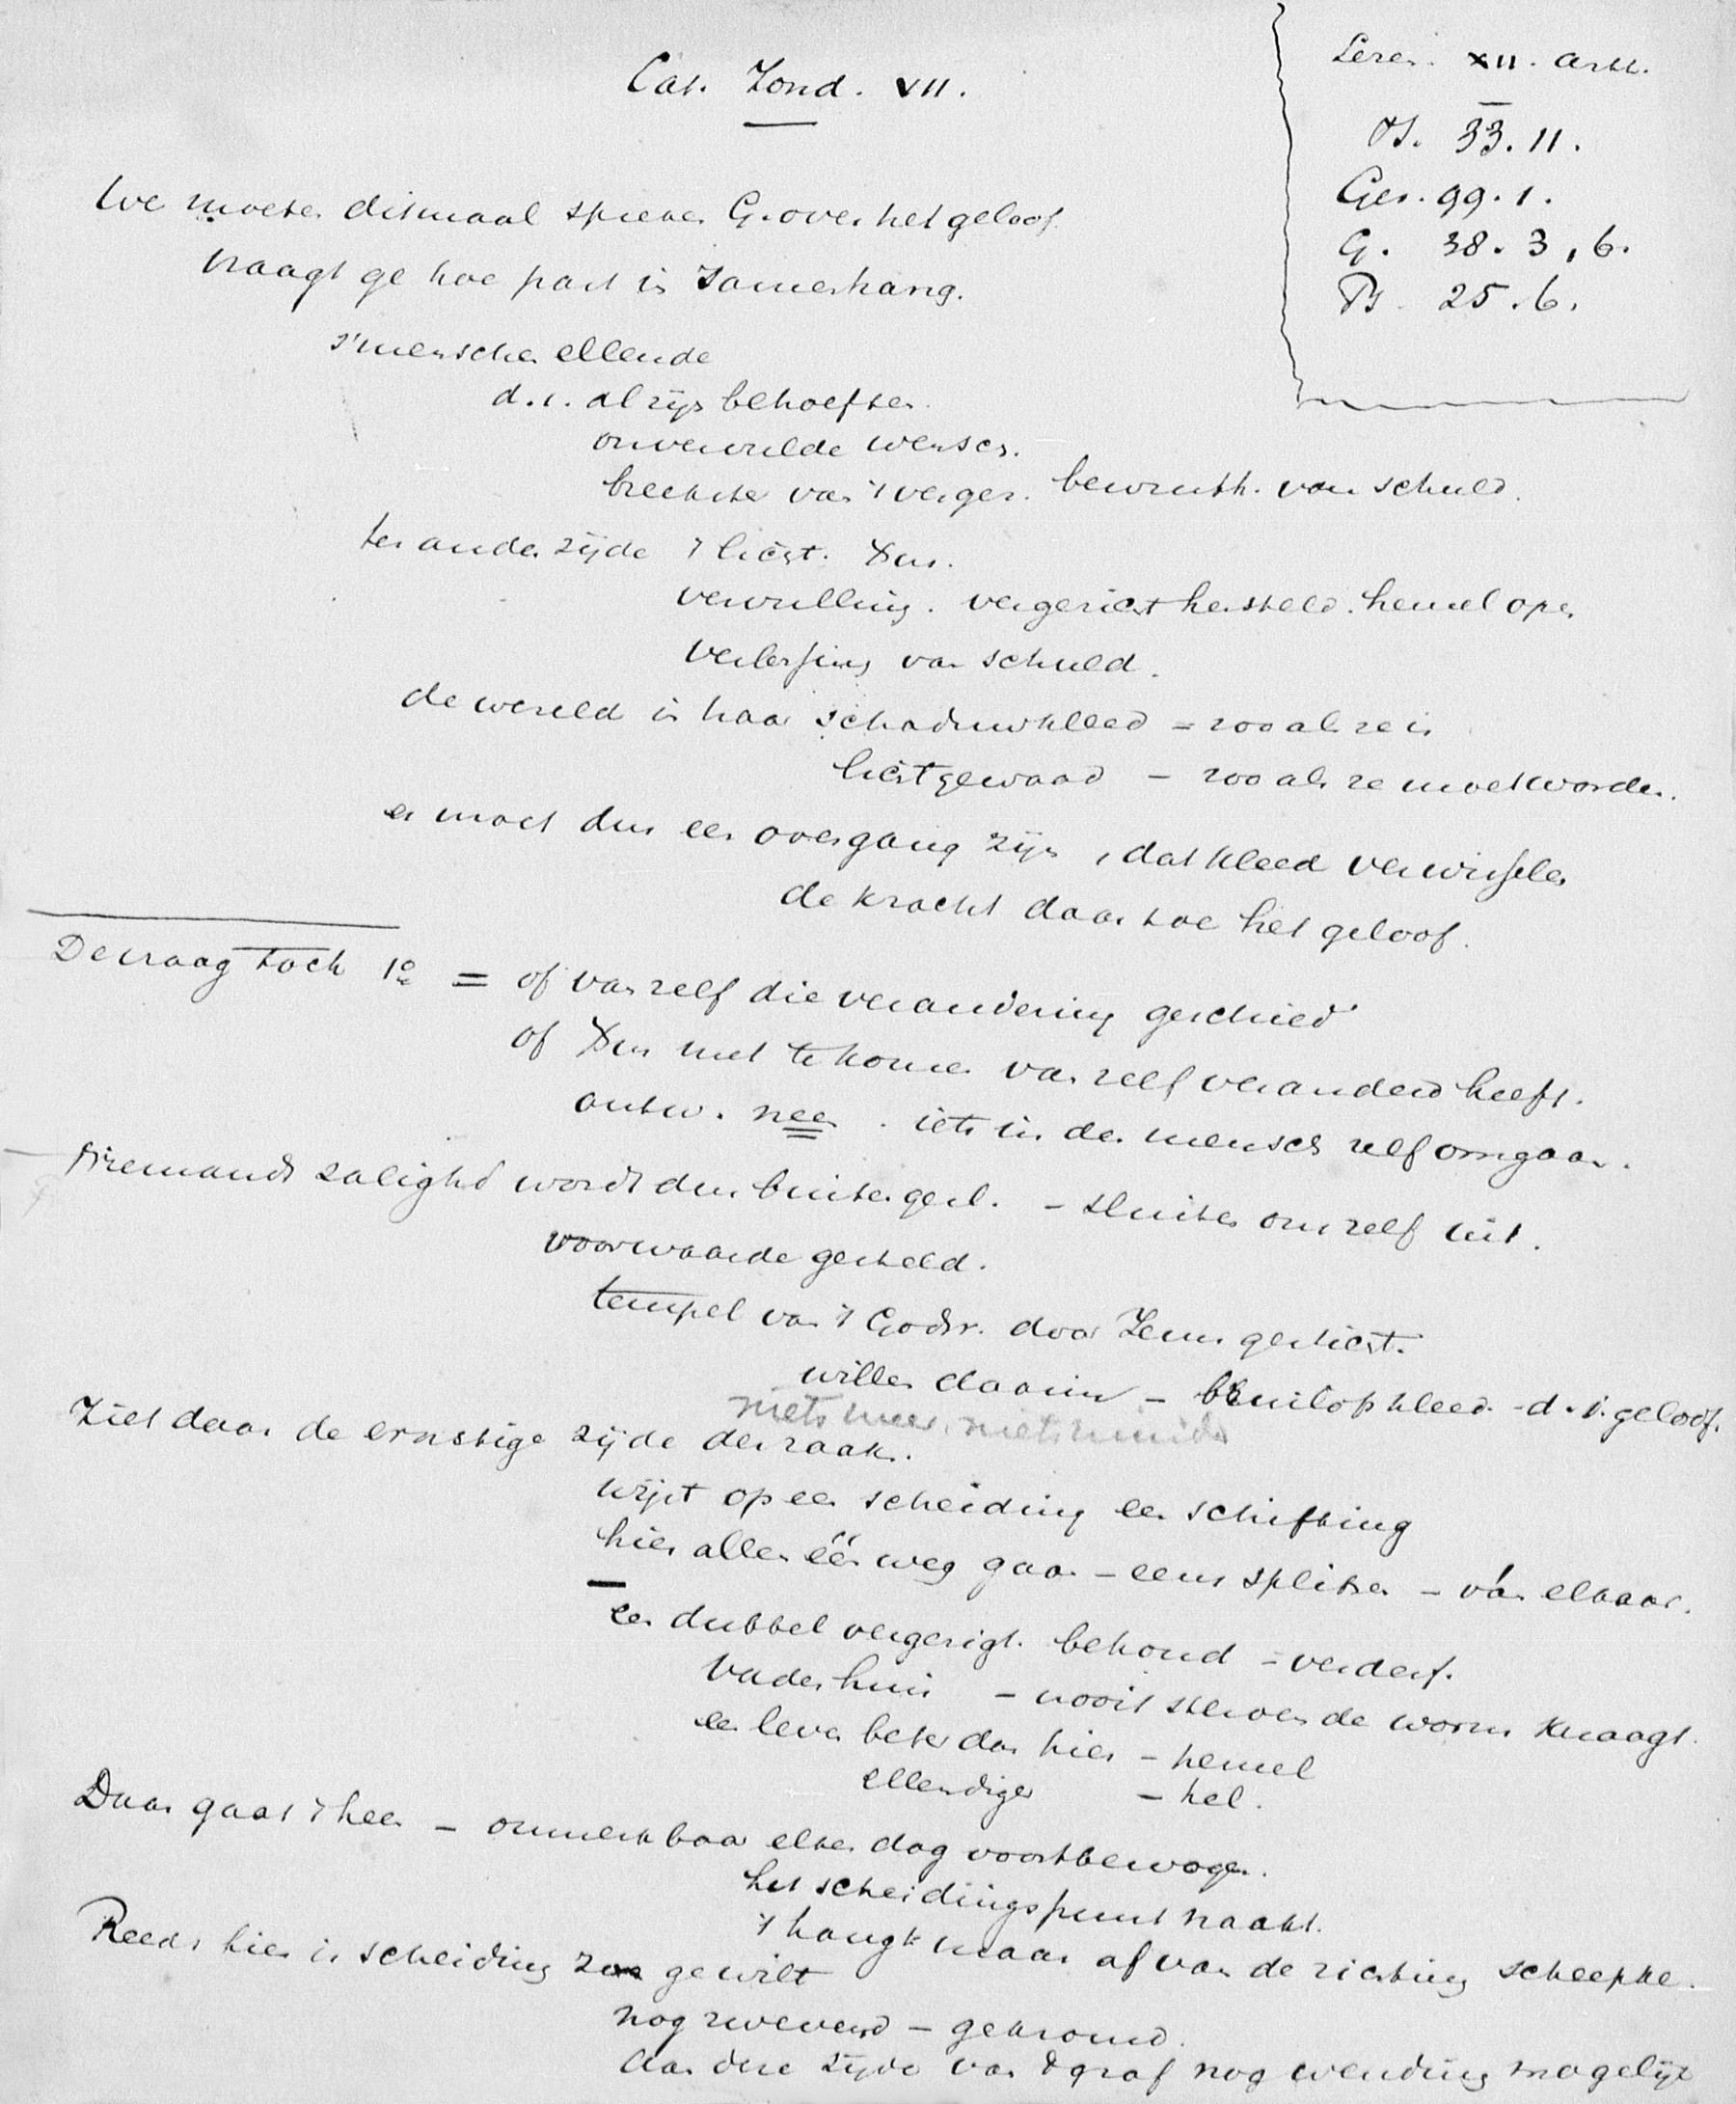 Cat. Zond. VII.
Lezen. XII. Artt.
Ps. 33. 11.
Gez. 99. 1.
G. 38. 3, 6.
Ps. 25. 6.
We moeten ditmaal spreken G. over het geloof.
Vraagt ge hoe past in Samenhang.
s'menschen ellende
d.i. al zijn behoeften.
onvervulde wensen.
van 't verger. bewusth. van schuld.
ter ander zijde 't licht. Xus.
vervulling. vergezicht hersteld. hemel open
verlossing van schuld.
de wereld in haar schaduwkleed = zooals ze is
lichtgewaad – zooals ze moet worden.
er moet dus een overgang zijn, dat kleed verwisselen
de kracht daartoe het geloof.
De vraag toch 1o = of van zelf die verandering geschied
of Xus met te komen van zelf veranderd heeft.
antw. neen. iets in den mensch zelf omgaan.
Niemands zalighd wordt dus buitengesl. – sluiten ons zelf uit.
voorwaarde gesteld.
tempel van 't Godsr. door Jezus gesticht.
willen daarin – bruilofskleed. - d.i. geloof.
niets meer, niets minder
Ziet daar de ernstige zijde der zaak.
wijst op een scheiding een schifting
hier allen één weg gaan – eens splitsen – ván elkaar.
een dubbel vergezigt. behoud – verderf.
Vaderhuis – nooit stervende worm knaagt.
een leven beter dan hier – hemel
ellendiger – hel.
Daar gaat 't heen – onmerkbaar elken dag voortbewogen.
het scheidingspunt naakt.
't hangt maar af van de richting scheepke.
Reeds hier is scheiding gewilt
nog zwevend – gekroond.
aan deze zijde van 't graf nog wending mogelijk